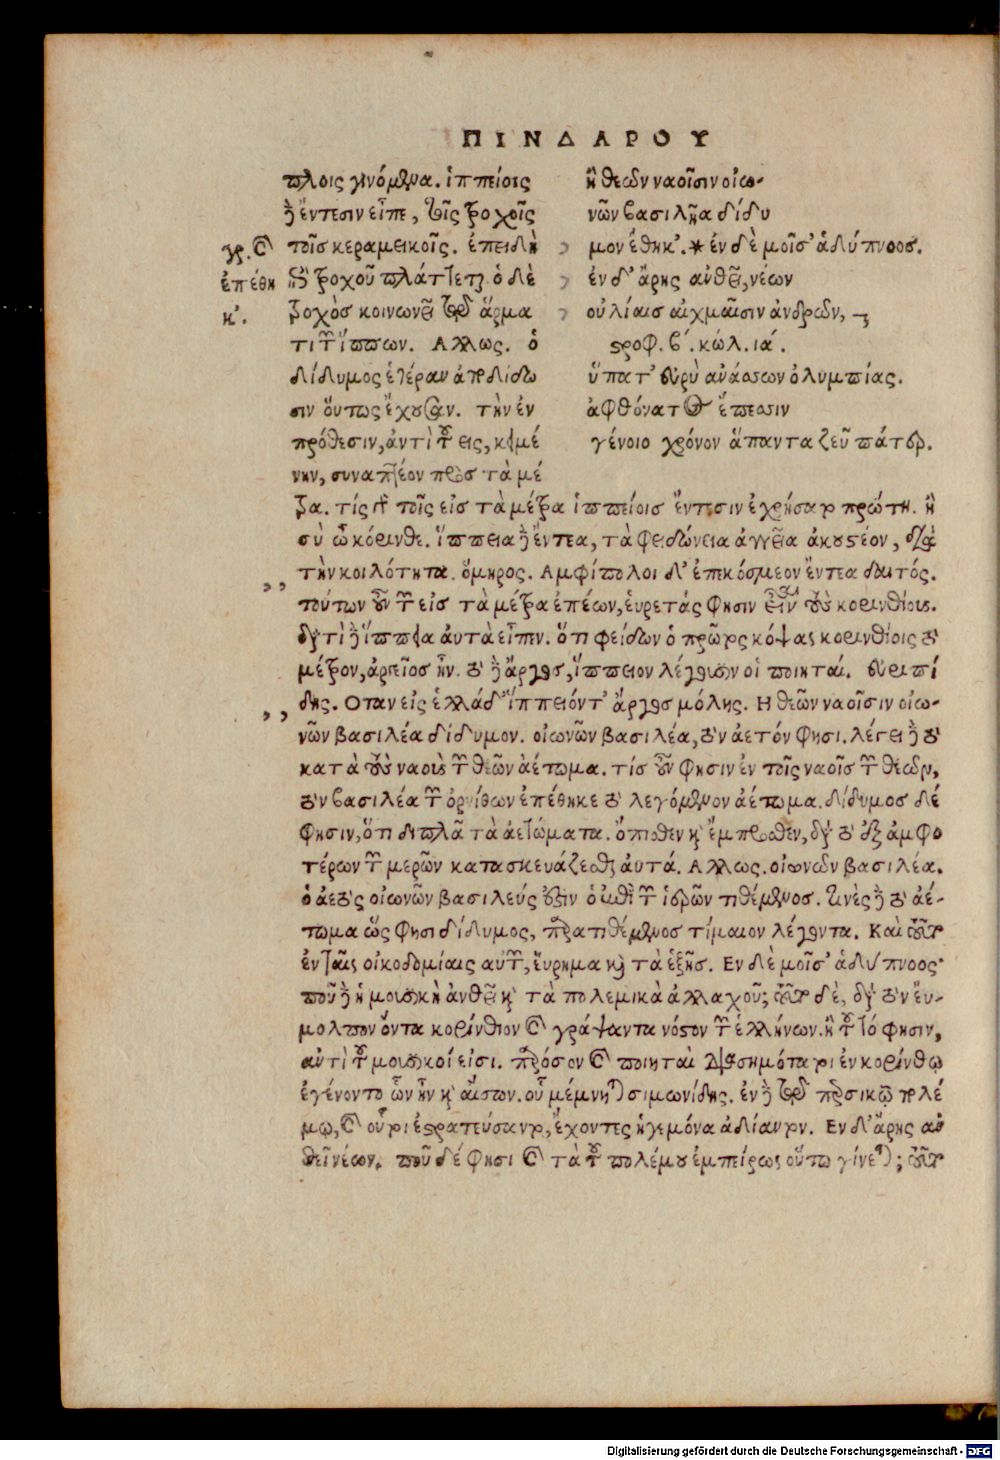 ΠΙΝΔΑΡΟΥ
πλοις γινόμενα. ἱππείοις
γὰ ἔντεσιν εἶπε, τοῖς τροχοῖς
τοῖς κεραμεικοῖς. ἐπειδὴ
τροχοῦ πλάττεται. ὁ δὲ
τροχὸς κοινωνεῖ τῷ ἅρμα
τι τῶν ἵππων. Αλλως. ὁ
δίδυμος ἑτέραν ἀποδίδω
σιν οὕτως ἔχουσαν. τὴν ἐν
πρόθεσιν, ἀντὶ τοῦ εις, κειμέ
νην, συναπτέον πρὸς τὰ μέ
γρ. καὶ
ἐπέθη
κ'.
ἢ θεῶν ναοῖσιν οἰω-
νῶν βασιλῆα δίδυ
μον ἔθηκ'. * ἐν δὲ μοῖσ' ἁδύπνοος.
ἐν δ' ἄρης ἀνθεῖ, νέων
οὐλίαις αἰχμαῖσιν ἀνδρῶν,
στροφ. β'. κώλ. ια'.
ὕπατ' εὐρὺ ἀνάσσων ὀλυμπίας.
ἀφθόνατος ἔπεσσιν
γένοιο χρόνον ἅπαντα ζεῦ πάτερ.
τρα. τίς γὰρ τοῖς εἰς τὰ μέτρα ἱππείοις ἔντεσιν ἐχρήσατο πρώτη. ἢ
σὺ ὦ κόρινθε. ἵππεια γὰρ ἔντεα, τὰ φειδώνεια ἀγγεῖα ἀκουστέον, διὰ
τὴν κοιλότητα. ὅμηρος. Αμφίπολοι δ' ἐπεκόσμεον ἔντεα δαιτός.
τούτων οὖν τῶν εἰς τὰ μέτρα ἐπέων, εὑρετάς φησιν εἶναι τοὺς κορινθίους.
διατὶ γὰρ ἵππεια αὐτὰ εἶπεν. ὅτι φείδων ὁ πρῶτος κόψας κορινθίοις τὸ
μέτρον, ἀργεῖος ἦν. τὸ γὰρ ἄργος, ἵππειον λέγουσιν οἱ ποιηταί. εὐριπί
δης. Οταν εἰς ἑλλάδ' ἵππειόντ' ἄργος μόλης. Η θεῶν ναοῖσιν οἰω-
νῶν βασιλέα δίδυμον. οἰωνῶν βασιλέα, τὸν ἀετόν φησι. λέγει γὰρ τὸ
κατὰ τοὺς ναοὺς τῶν θεῶν ἀέτωμα. τίς οὖν φησιν ἐν τοῖς ναοῖς τῶν θεῶν,
τὸν βασιλέα τῶν ὀρνίθων ἐπέθηκε τὸ λεγόμενον ἀέτωμα. δίδυμος δέ
φησιν, ὅτι διπλᾶ τὰ ἀετώματα. ὄπισθεν καὶ ἔμπροσθεν, διὰ τὸ ἐξ ἀμφο
τέρων τῶν μερῶν κατασκευάζεσθαι αὐτά. Αλλως. οἰωνῶν βασιλέα.
ὁ ἀετὸς οἰωνῶν βασιλεύς ἐστιν ὁ ἐπὶ τῶν ἱερῶν τιθέμενος. τινὲς γὰρ τὸ ἀέ-
τωμα ὥς φησι δίδυμος, παρατιθέμενος τίμαιον λέγοντα. Καὶ τοῦτο
ἐν ταῖς οἰκοδομίαις αὐτῶν, εὕρημα καὶ τὰ ἑξῆς. Εν δὲ μοῖσ' ἁδύπνοος·
ποῦ γὰρ ἡ μουσικὴ ἀνθεῖ καὶ τὰ πολεμικὰ ἀλλαχοῦ; τοῦτο δὲ, διὰ τὸν εὔ-
μολπον ὄντα κορίνθιον καὶ γράψαντα νόστον τῶν ἑλλήνων. ἢ τοῦτό φησιν,
ἀντὶ τοῦ μουσικοί εἰσι. παρόσον καὶ ποιηταὶ διασημότατοι ἐν κορίνθῳ
ἐγένοντο ὧν ἦν καὶ αἴσων. οὗ μέμνηται σιμωνίδης. ἐν γὰρ τῷ περσικῷ πολέ
μῳ, καὶ οὗτοι ἐστρατεύσαντο, ἔχοντες ἡγεμόνα ἀδίαντον. Εν δ' ἄρης ἀν
θεῖ νέων. ποῦ δέ φησι καὶ τὰ τοῦ πολέμου ἐμπείρως οὕτω γίνεται; τοῦτο
Digitalisierung gefördert durch die Deutsche Forschungsgemeinschaft - DFG